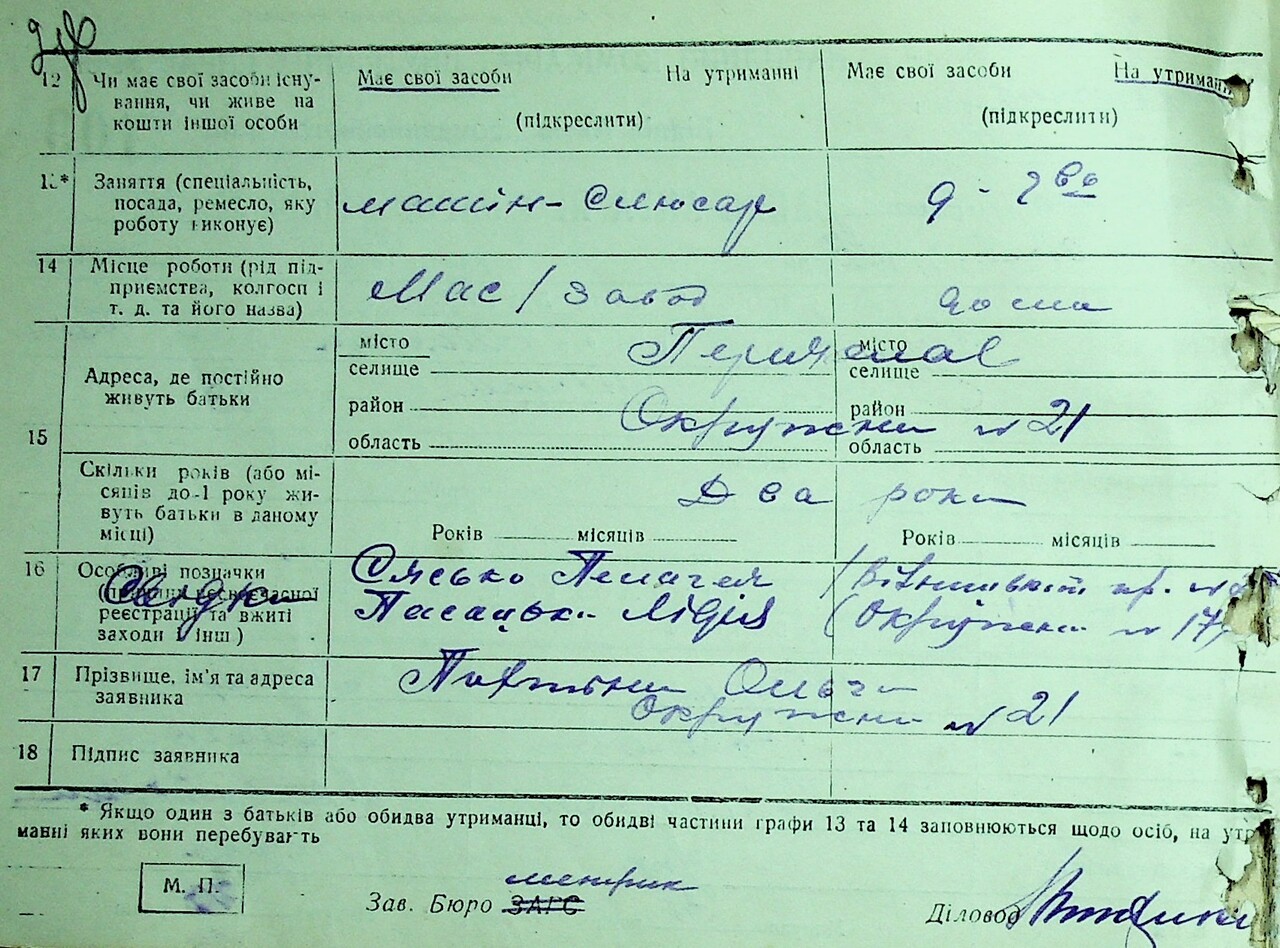 12 Чи має свої засоби існу-
вання, чи живе на
кошти іншої особи
Має свої засоби На утриманні
(підкреслити)
Має свої засоби На утриманні
(підкреслити)
13* Заняття (спеціальність,
посада, ремесло, яку
роботу виконує)
машин-слюсар
д-2во
14 Місце роботи (рід під-
приємства, колгосп і
т. д. та його назва)
Мас/завод
дома
15 Адреса, де постійно
живуть батьки
місто
селище
район
область
місто
селище
район
область
Окружна № 21
Скільки років (або мі-
сяців до 1 року жи-
вуть батьки в даному
місці)
Два роки
Років місяців
Років місяців
16 Особливі позначки
реєстрації та вжиті
заходи й інш)
Свідки
Пелагея
Лідія (Окружна № 17
17 Прізвище, ім'я та адреса
заявника
Ольга
Окружна № 21
18 Підпис заявника
* Якщо один з батьків або обидва утриманці, то обидві частини графи 13 та 14 заповнюються щодо осіб, на утри
манні яких вони перебувають
М. П.
метрик
Зав. Бюро ЗАГС
Діловод